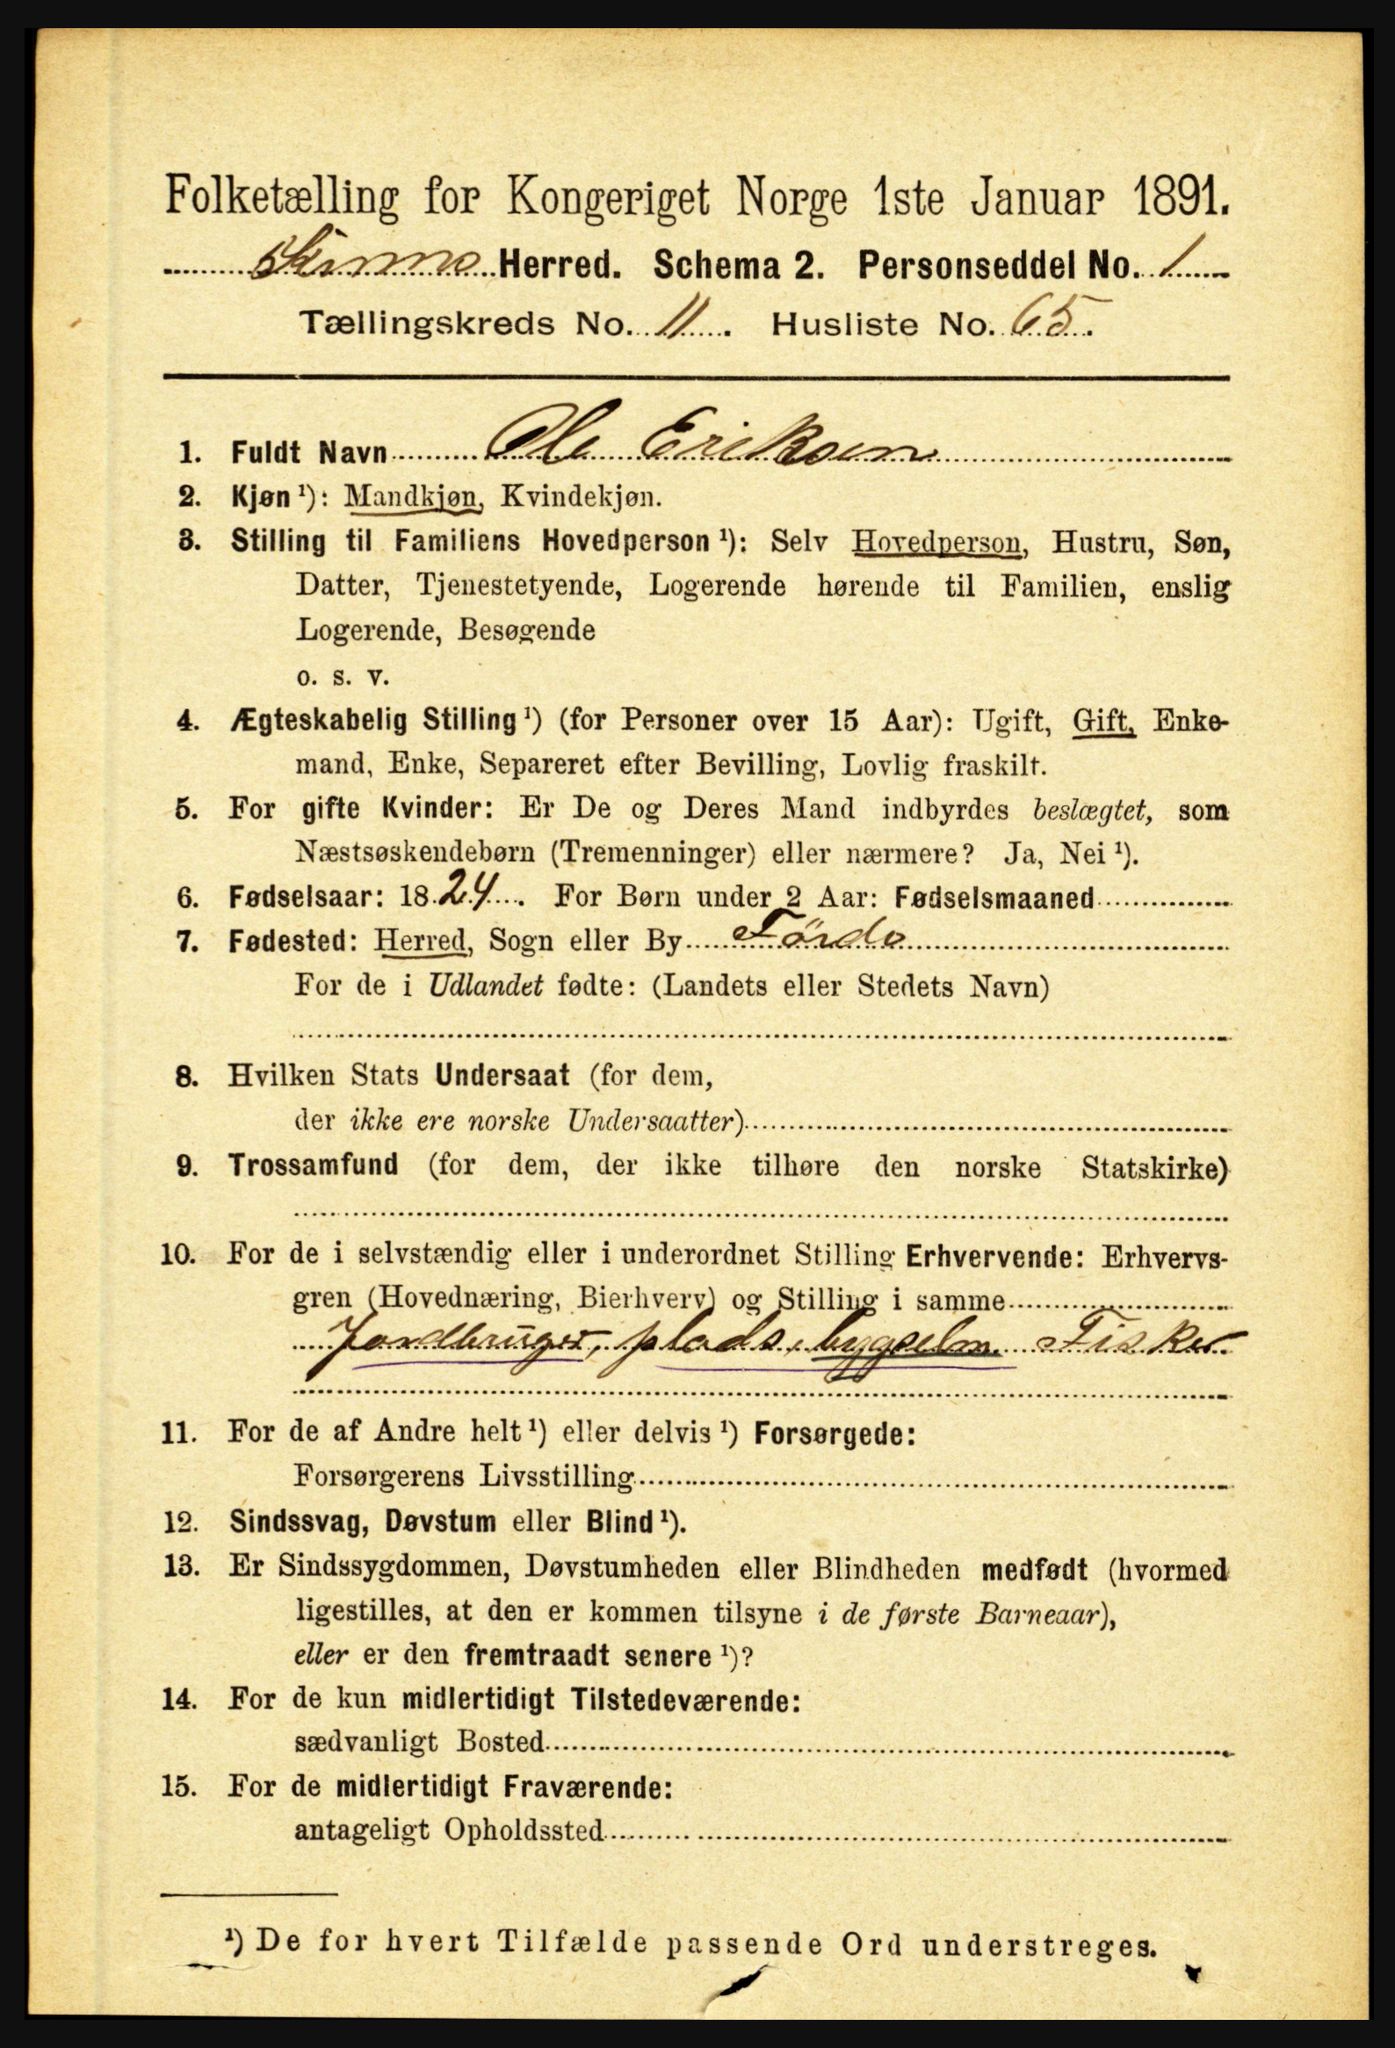 Folketælling for Kongeriget Norge 1ste Januar 1891.
Kinns Herred. Schema 2. Personseddel No. 1
Tællingskreds No. 11. Husliste No. 65.
1. Fuldt Navn Ole Eriksen
2. Kjøn¹): Mandkjøn, Kvindekjøn.
3. Stilling til Familiens Hovedperson¹): Selv Hovedperson, Hustru, Søn,
Datter, Tjenestetyende, Logerende hørende til Familien, enslig
Logerende, Besøgende
o. s. v.
4. Ægteskabelig Stilling¹) (for Personer over 15 Aar): Ugift, Gift, Enke-
mand, Enke, Separeret efter Bevilling, Lovlig fraskilt.
5. For gifte Kvinder: Er De og Deres Mand indbyrdes beslægtet, som
Næstsøskendebørn (Tremenninger) eller nærmere? Ja, Nei¹).
6. Fødselsaar: 1824. For Børn under 2 Aar: Fødselsmaaned
7. Fødested: Herred, Sogn eller By Förde
For de i Udlandet fødte: (Landets eller Stedets Navn)
8. Hvilken Stats Undersaat (for dem,
der ikke ere norske Undersaatter)
9. Trossamfund (for dem, der ikke tilhøre den norske Statskirke)
10. For de i selvstændig eller i underordnet Stilling Erhvervende: Erhvervs-
gren (Hovednæring, Bierhverv) og Stilling i samme
Jordbruger, plads, bygselm. Fisker
11. For de af Andre helt¹) eller delvis¹) Forsørgede:
Forsørgerens Livsstilling
12. Sindssvag, Døvstum eller Blind¹).
13. Er Sindssygdommen, Døvstumheden eller Blindheden medfødt (hvormed
ligestilles, at den er kommen tilsyne i de første Barneaar),
eller er den fremtraadt senere¹)?
14. For de kun midlertidigt Tilstedeværende:
sædvanligt Bosted
15. For de midlertidigt Fraværende:
antageligt Opholdssted
¹) De for hvert Tilfælde passende Ord understreges.